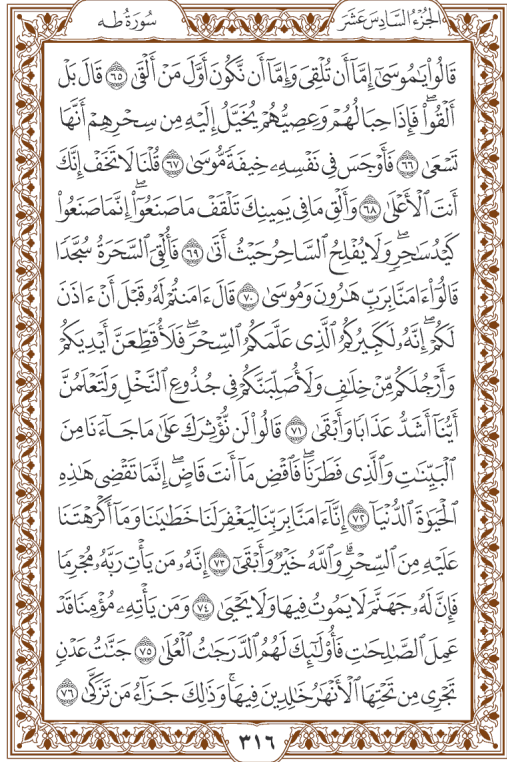 سُورَةُ طه
الجُزْءُ السَّادِسَ عَشَرَ
قَالُواْ يَٰمُوسَىٰٓ إِمَّآ أَن تُلْقِىَ وَإِمَّآ أَن نَّكُونَ أَوَّلَ مَنْ أَلْقَىٰ ٦٥ قَالَ بَلْ
أَلْقُواْ ۖ فَإِذَا حِبَالُهُمْ وَعِصِيُّهُمْ يُخَيَّلُ إِلَيْهِ مِن سِحْرِهِمْ أَنَّهَا
تَسْعَىٰ ٦٦ فَأَوْجَسَ فِى نَفْسِهِۦ خِيفَةً مُّوسَىٰ ٦٧ قُلْنَا لَا تَخَفْ إِنَّكَ
أَنتَ ٱلْأَعْلَىٰ ٦٨ وَأَلْقِ مَا فِى يَمِينِكَ تَلْقَفْ مَا صَنَعُوٓاْ ۖ إِنَّمَا صَنَعُواْ
كَيْدُ سَٰحِرٍ ۖ وَلَا يُفْلِحُ ٱلسَّاحِرُ حَيْثُ أَتَىٰ ٦٩ فَأُلْقِىَ ٱلسَّحَرَةُ سُجَّدًا
قَالُوٓاْ ءَامَنَّا بِرَبِّ هَٰرُونَ وَمُوسَىٰ ٧٠ قَالَ ءَامَنتُمْ لَهُۥ قَبْلَ أَنْ ءَاذَنَ
لَكُمْ ۖ إِنَّهُۥ لَكَبِيرُكُمُ ٱلَّذِى عَلَّمَكُمُ ٱلسِّحْرَ ۖ فَلَأُقَطِّعَنَّ أَيْدِيَكُمْ
وَأَرْجُلَكُم مِّنْ خِلَٰفٍ وَلَأُصَلِّبَنَّكُمْ فِى جُذُوعِ ٱلنَّخْلِ وَلَتَعْلَمُنَّ
أَيُّنَآ أَشَدُّ عَذَابًا وَأَبْقَىٰ ٧١ قَالُواْ لَن نُّؤْثِرَكَ عَلَىٰ مَا جَآءَنَا مِنَ
ٱلْبَيِّنَٰتِ وَٱلَّذِى فَطَرَنَا ۖ فَٱقْضِ مَآ أَنتَ قَاضٍ ۖ إِنَّمَا تَقْضِى هَٰذِهِ
ٱلْحَيَوٰةَ ٱلدُّنْيَآ ٧٢ إِنَّآ ءَامَنَّا بِرَبِّنَا لِيَغْفِرَ لَنَا خَطَٰيَٰنَا وَمَآ أَكْرَهْتَنَا
عَلَيْهِ مِنَ ٱلسِّحْرِ ۗ وَٱللَّهُ خَيْرٌ وَأَبْقَىٰٓ ٧٣ إِنَّهُۥ مَن يَأْتِ رَبَّهُۥ مُجْرِمًا
فَإِنَّ لَهُۥ جَهَنَّمَ لَا يَمُوتُ فِيهَا وَلَا يَحْيَىٰ ٧٤ وَمَن يَأْتِهِۦ مُؤْمِنًا قَدْ
عَمِلَ ٱلصَّٰلِحَٰتِ فَأُوْلَٰٓئِكَ لَهُمُ ٱلدَّرَجَٰتُ ٱلْعُلَىٰ ٧٥ جَنَّٰتُ عَدْنٍ
تَجْرِى مِن تَحْتِهَا ٱلْأَنْهَٰرُ خَٰلِدِينَ فِيهَا ۚ وَذَٰلِكَ جَزَآءُ مَن تَزَكَّىٰ ٧٦
٣١٦